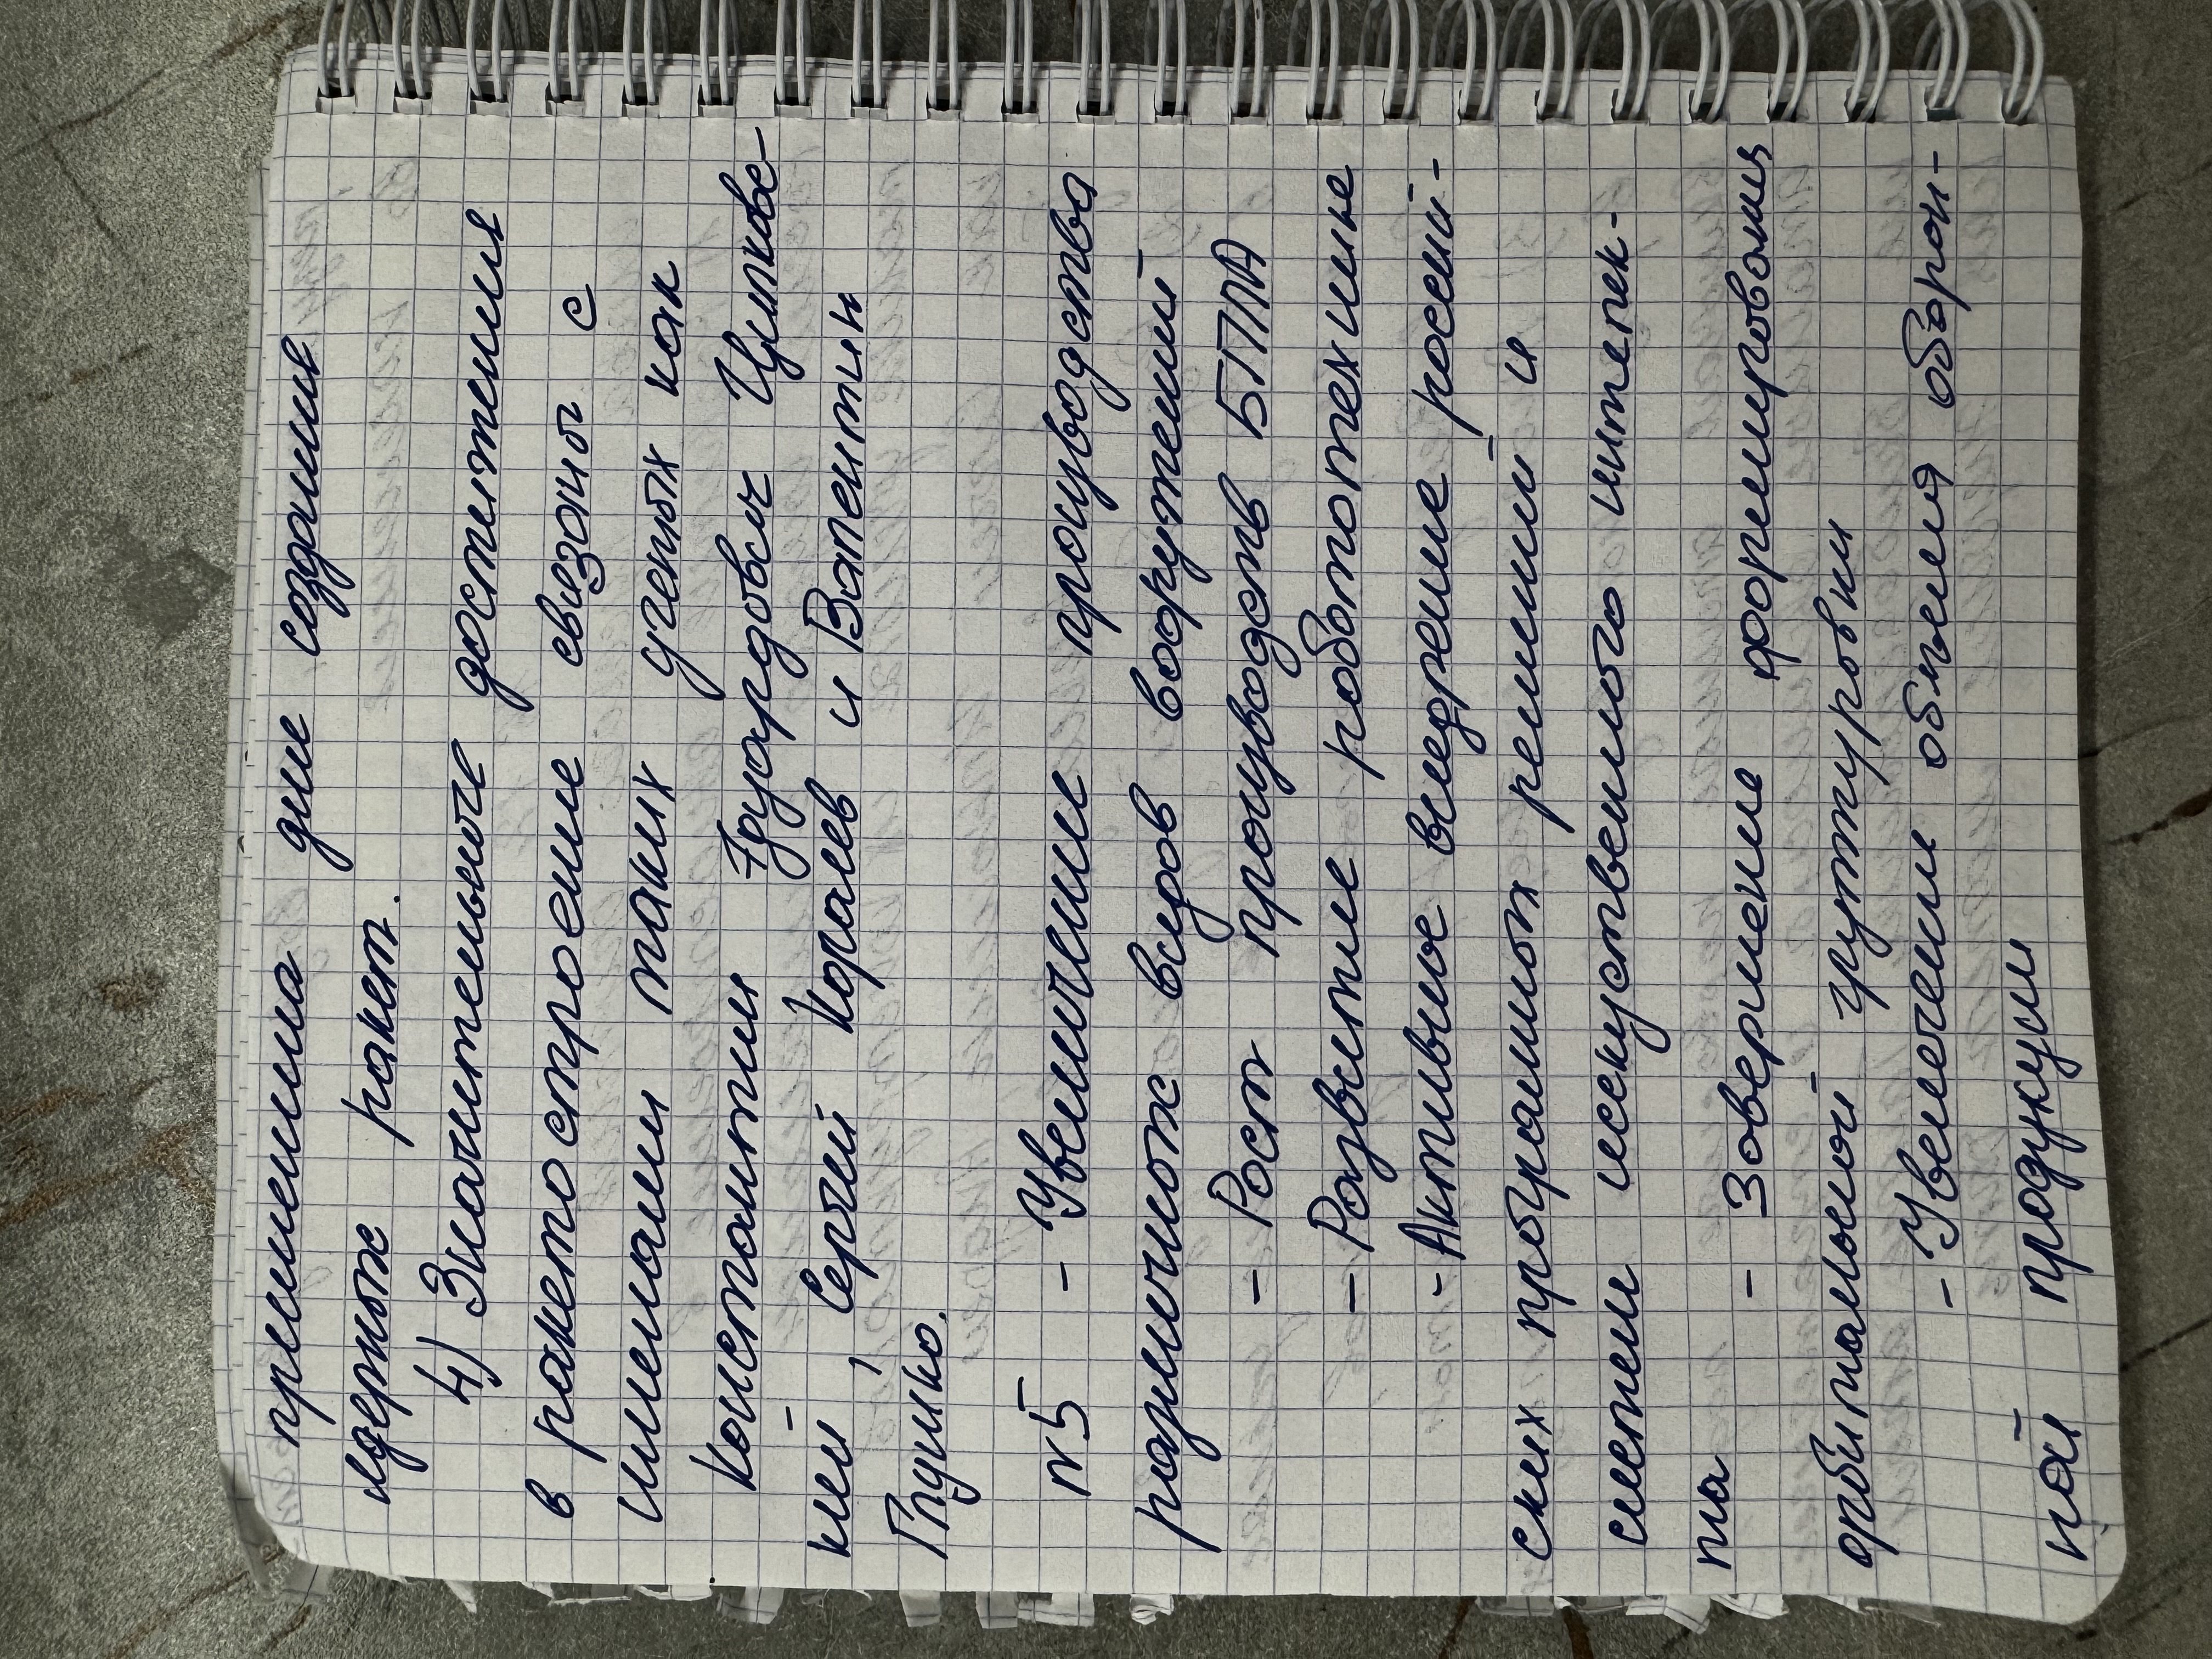 применима для создания
ядерных ракет.
4) Значительные достижения
в ракетостроение связаны с
именами таких ученых как
Константин Эдуардович Циалков-
кий, Сергей Королев и Валентин
Глушко.
№5 - Увеличение производства
различных видов вооружений
- Рост производств БПЛА
- Развитие работотехники
- Активное внедрение россий-
ских програмных решений и
систем исскуственного интелек-
та
- Завершение формирования
орбитальной группировки
- Увеличении объемов оборон-
ной продукции